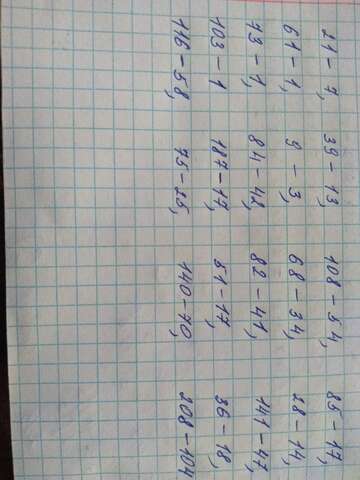 21 – 7, 39 – 13, 108 – 54, 85 – 17,
61 – 1, 9 – 3, 68 – 34, 28 – 14,
73 – 1, 84 – 42, 82 – 41, 141 – 47,
103 – 1 187 – 17, 51 – 17, 36 – 18,
116 – 58, 75 – 25, 140 – 70, 208 – 104